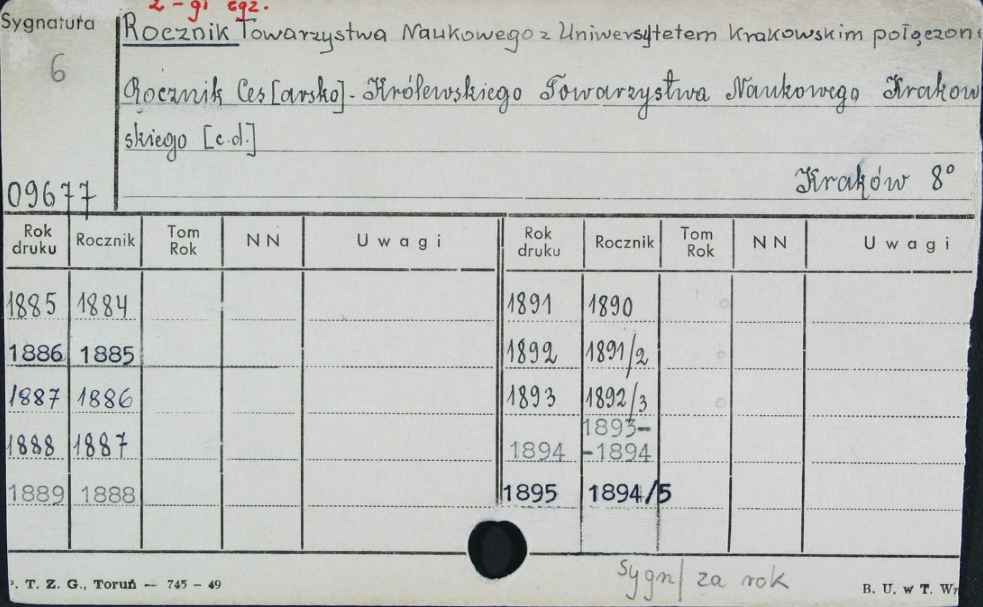 2-gi egz.
Sygnatura
6
09677
Rocznik Towarzystwa Naukowego z Uniwersytetem Krakowskim połączon
Rocznik Ces[arsko]-Królewskiego Towarzystwa Naukowego Krakow
skiego [c.d.]
Kraków 8°
Rok druku Rocznik Tom Rok NN Uwagi Rok druku Rocznik Tom Rok NN Uwagi
1885 1884 1891 1890
1886 1885 1892 1891/2
1887 1886 1893 1892/3
1888 1887 1894 1893-
-1894
1889 1888 1895 1894/5
Sygn/ za rok
. T. Z. G., Toruń — 745 - 49
B. U. w T. W